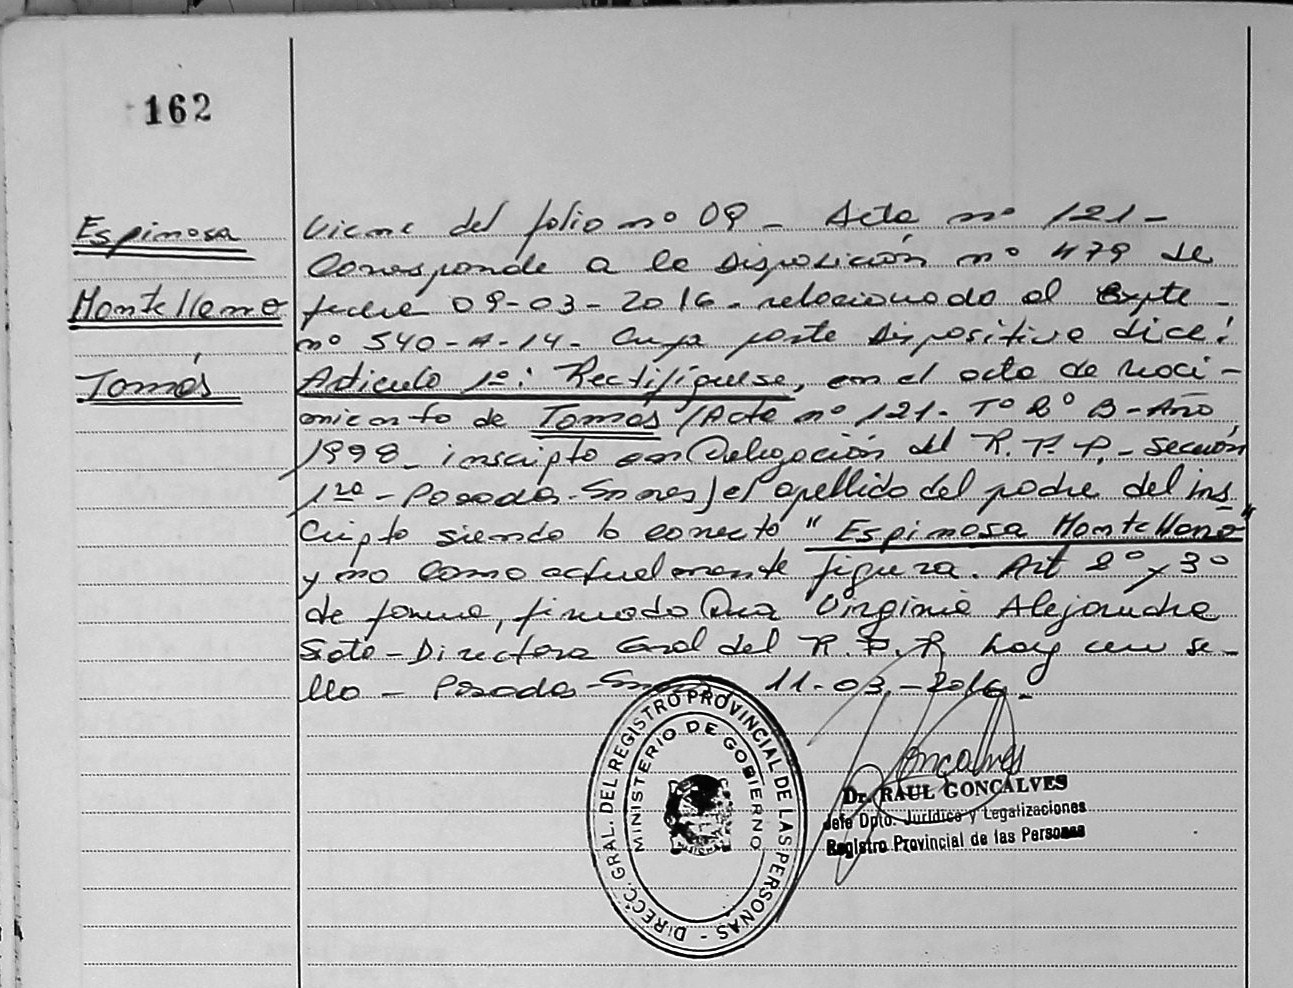 162
Espinosa
Montellano
Tomás
Viene del folio nº 09 - Acta nº 121 -
Corresponde a la Disposición nº 479 de
fecha 09-03-2016 - relacionado al Expte -
nº 540-A-14 - Cuya parte Dispositiva dice:
Articulo 1º: Rectifíquese, en el acta de naci-
miento de Tomás (Acta nº 121 - Tº 2º B - Año
1998 - inscripto en Delegación del R. P. P. - Sección
1ra - Posadas - Smnes) el apellido del padre del ins
cripto siendo lo correcto "Espinosa Montellano"
y no como actualmente figura. Art 2º y 3º
de forma, firmado Dra Virginia Alejandra
Soto - Directora Gral del R. P. P. hay un se-
llo - Posadas - 11-03-2016 -
DIRECC. GRAL. DEL REGISTRO PROVINCIAL DE LAS PERSONAS -
MINISTERIO DE GOBIERNO
Goncalves
Dr. RAUL GONCALVES
Jefe Dpto. Jurídico y Legalizaciones
Registro Provincial de las Personas